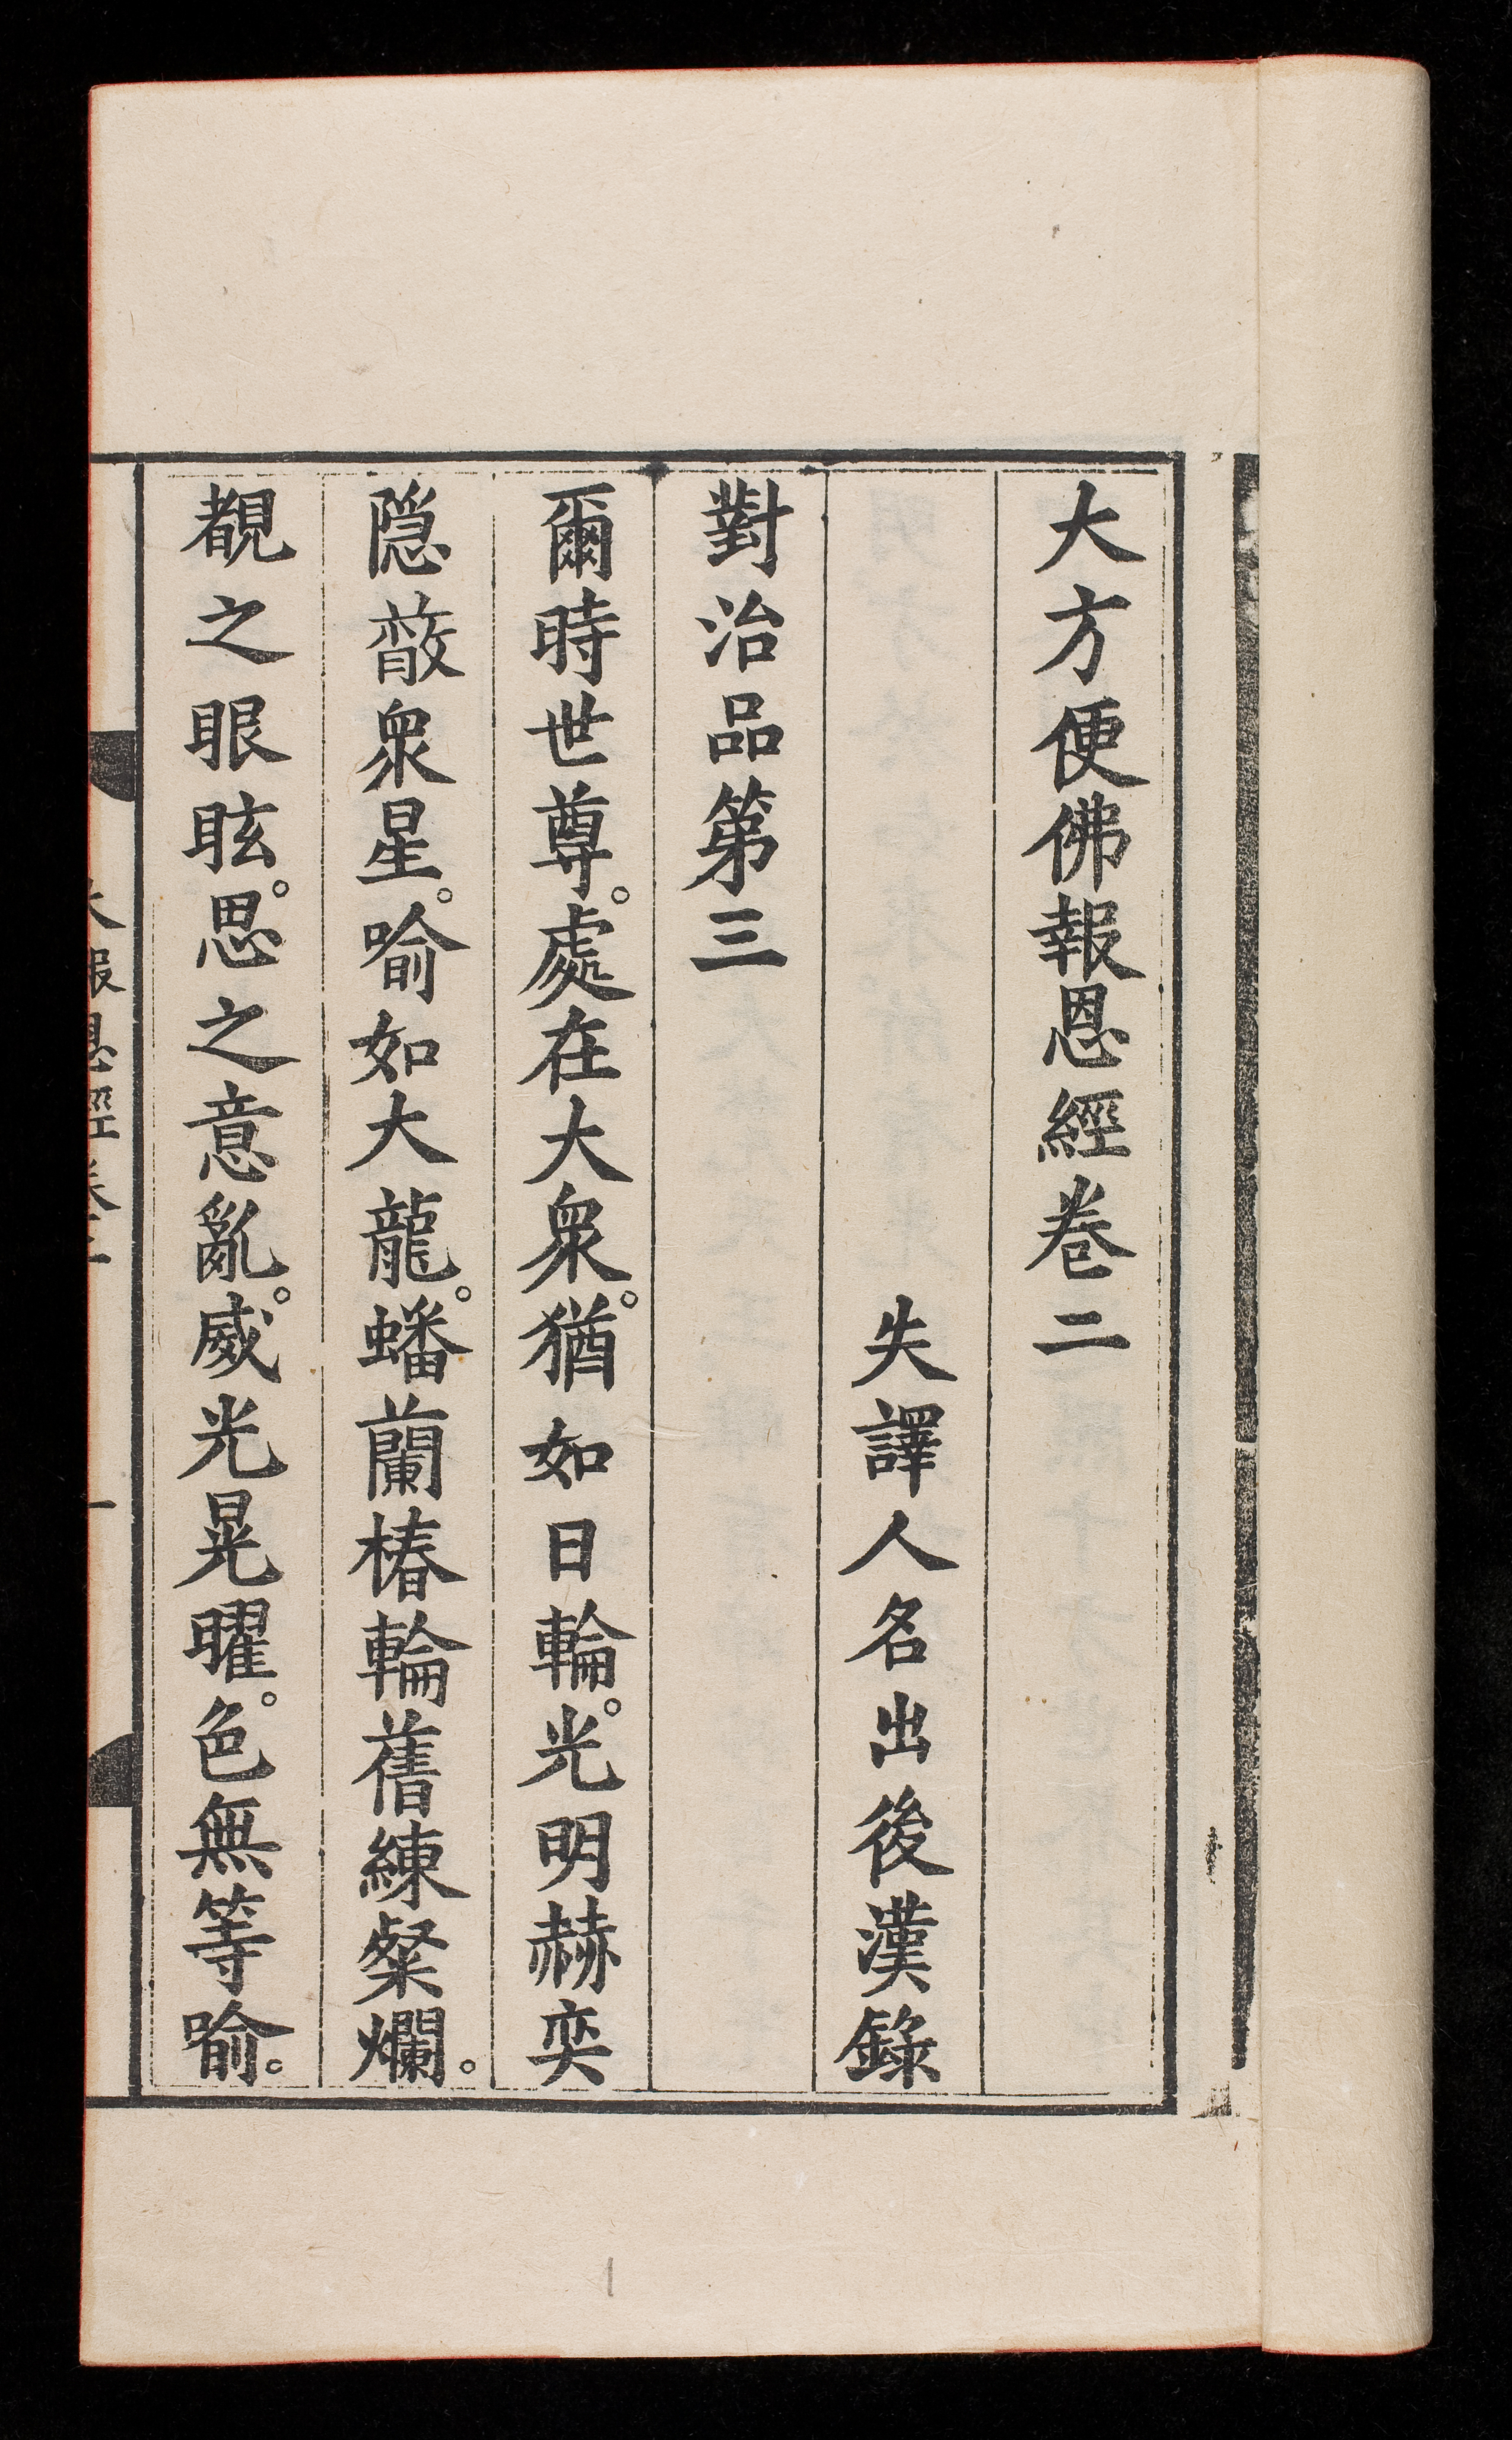 大方便佛報恩經卷二
失譯人名出後漢錄
對治品第三
爾時世尊。處在大衆。猶如日輪。光明赫奕
隠蔽衆星。喻如大龍。蟠蘭椿輪舊練粲爛。
覩之眼眩。思之意亂。威光晃曜。色無等喻。
大報恩經卷二
一